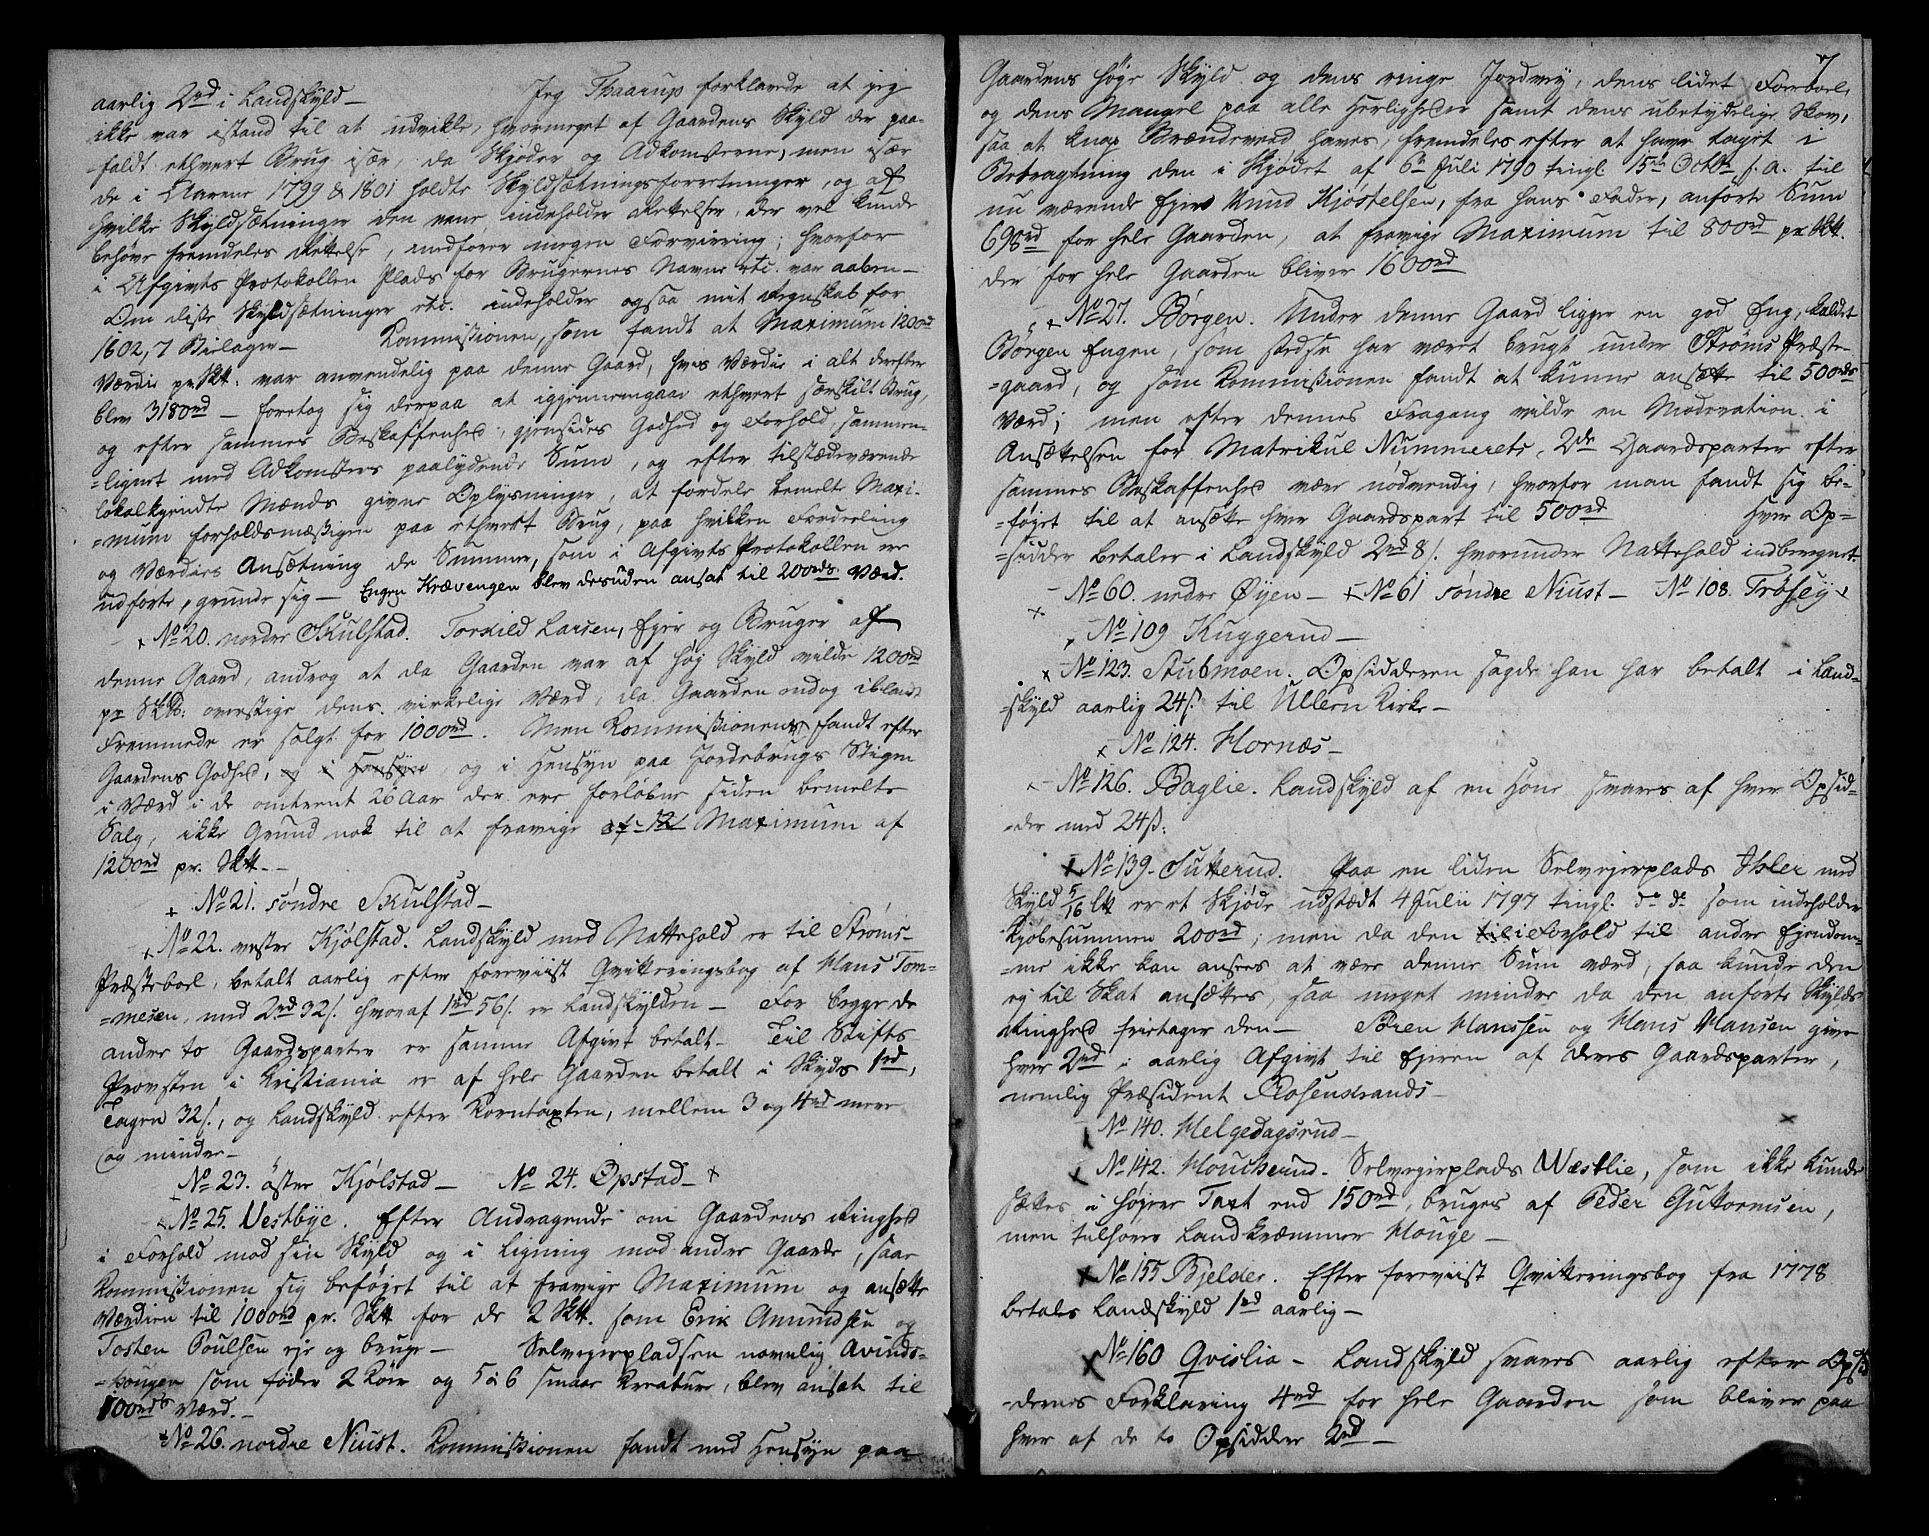 aarlig 2rd i Landskyld — Jeg Thaarup forklarede at jeg
ikke var istand til at udvikle, hvormeget af Gaardens Skyld der paa-
faldt ethvert Brug især, da Skjøder og Adkomsterne, men især
de i Aarene 1799 & 1801 holdte Skyldsætningsforretninger, og af
hvilke Skyldsætninger den ene indeholder Rettelser, der vel kunde
behøve fremdeles Rettelse, medfører megen Forvirring; hvorfor
i Afgivts Protokollen Plads for Brugernes Navne etc. var aaben —
Om disse Skyldsætninger etc. indeholder ogsaa mit Regnskab for
1802, 7 Bielager — Kommissionen, som fandt at Maximum 1200rd
Værdie pr. Skt. var anvendelig paa denne Gaard, hvis Værdie i alt derefter
blev 3180rd — foretog sig derpaa at igjennemgaae ethvert særskilt Brug,
og efter sammes Beskaffenhed, gjensides Godhed og Forhold, sammen-
=lignet med Adkomsters paalydende Sum, og efter tilstædeværende
lokalkyndte Mænds givne Oplysninger, at fordele bemelte Maxi-
=mum forholdsmæssigen paa ethvert Brug, paa hvilken Fordeeling
og Værdies Ansætning de Summer, som i Afgivts Protokollen ere
udførte, grunde sig — Engen Krævengen blev desuden ansat til 200rds Værd.
No 20. nordre Skulstad. Torkild Larsen, Ejer og Bruger af
denne Gaard, androg at da Gaarden var af høj Skyld vilde 1200rd
pr Sktt: overstige dens virkelige Værd, da Gaarden endog iblandt
Fremmede er solgt for 1000rd. Men Kommissionen fandt efter
Gaardens Godhed, og i Hensyn og i Hensyn paa Jordebrugs Stigen
i Værd i de omtrent 26 Aar der ere forløbne siden bemelte
Salg, ikke Grund nok til at fravige af 12 Maximum af
1200rd pr. Sktt. —
No 21. søndre Skulstad —
No 22. vestre Kjølstad. Landskyld med Nattehold er til Strøms-
Præsteboel, betalt aarlig efter foreviist Qvitteringsbog af Hans Tom-
=mesen, med 2rd 32/. hvoraf 1rd 56/. er Landskylden — For begge de
andre to Gaardsparter er samme Afgivt betalt — Til Stifts
Provsten i Kristiania er af hele Gaarden betalt i Skyds 1rd,
Tagen 32/., og Landskyld efter Korntaxten, mellem 3 og 4rd mere
og mindre —
No 23. østre Kjølstad — No 24. Opstad —
No 25. Vestbye. Efter Andragende om Gaardens Ringhed
i Forhold mod sin Skyld og i Ligning mod andre Gaarde, saae
Kommissionen sig beføjet til at fravige Maximum og ansætte
Værdien til 1000rd pr. Skt for de 2 Skt. som Erik Amundsen og
Tosten Poulsen eje og bruge — Selvejerpladsen navnlig Avinds-
=hougen som føder 2 Køer og 5 à 6 smaae Kreature, blev ansat til
100rds Værd. —
No 26. nordre Niust. Kommissionen fandt med Hensyn paa
7
Gaardens høje Skyld og dens ringe Jordvej, dens lidet Foerboel,
og dens Mangel paa alle Herligheder samt dens ubetydelige Skov,
saa at knap Brændeveed haves, fremdeles efter at have taget i
Betragtning den i Skjødet af 6te Juli 1790 tingl. 15de Octbr. s. a. til
nu værende Ejer Knud Kjøstelsen, fra hans Fader, anførte Sum
698rd for hele Gaarden, at fravige Maximum til 800rd pr. Skt.
der for hele Gaarden bliver 1600rd
No 27. Børgen. Under denne Gaard ligger en god Eng, kaldet
Børgen Engen, som stedse har været brugt under Strøms Præste-
=gaard, og som Kommissionen fandt at kunne ansætte til 500rds
Værd; men efter dennes Fragang vilde en Moderation i
Ansættelsen for Matrikul Nummerets 2de Gaardsparter efter
sammes Beskaffenhed være nødvendig, hvorfor man fandt sig be-
=føjet til at ansætte hver Gaardspart til 500rd hver Op-
=sidder betaler i Landskyld 2rd 8/. hvorunder Nattehold indberegnet.
No 60. nedre Øyen — No 61 søndre Niust — No 108. Trøsey
No 109 Kuggerud —
No 123. Stubmoen. Opsidderen sagde han har betalt i Land-
=skyld aarlig 24/. til Ullern Kirke —
No 124. Hornæs —
No 126. Baglie. Landskyld af en Høne svares af hver Opsid-
=der med 24ß.
No 139. Sutterud. Paa en liden Selvejerplads Isler med
Skyld 5/16 Ltt er et Skjøde udstædt 4 Julii 1797 tingl. d. d. som indeholder
Kjøbesummen 200rd; men da den til i Forhold til andre Ejendom-
=me ikke kan ansees at være denne Sum værd, saa kunde den
ej til Skat ansættes, saa meget mindre da den anførte Skylds
Ringhed fritager den — Søren Hanssen og Hans Hansen give
hver 2rd i aarlig Afgivt til Ejeren af deres Gaardsparter,
nemlig Præsident Rosenkrands —
No 140. Helgedagsrud —
No 142. Houcherud. Selvejerplads Wæstlie, som ikke kunde
sættes i højere Taxt end 150rd, bruges af Peder Guttormsen,
men tilhører Landkræmmer Houge —
No 155 Bjelder. Efter foreviist Qvitteringsbog fra 1778
betales Landskyld 1rd aarlig —
No 160 Qvislia — Landskyld svares aarlig efter Opsid-
=dernes Forklaring 4rd for hele Gaarden som bliver paa
hver af de to Opsiddere 2rd —